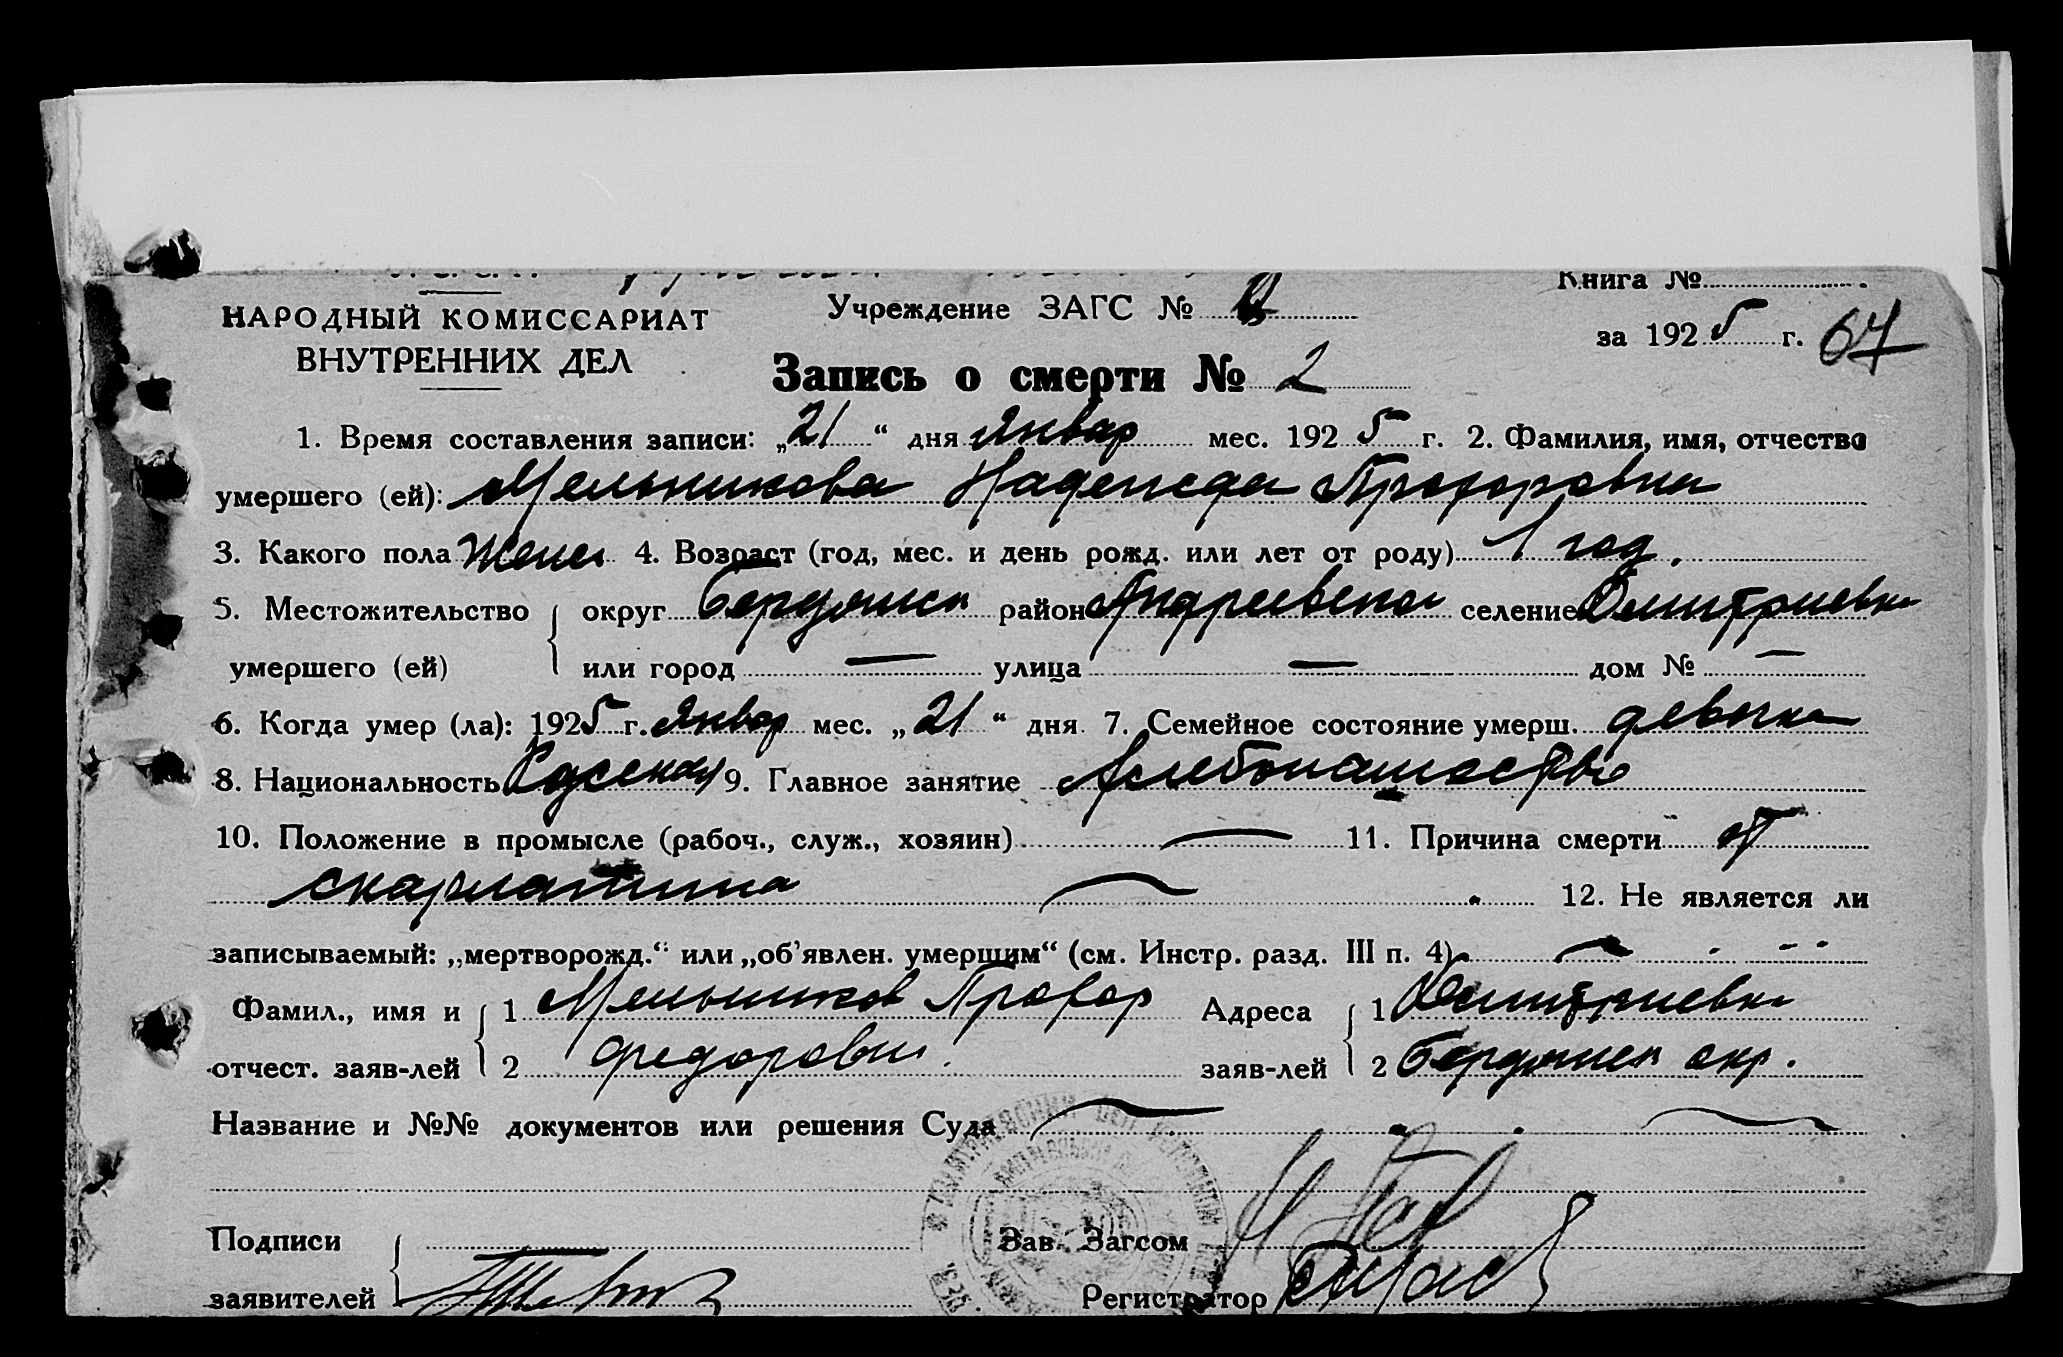 Книга №
НАРОДНЫЙ КОМИССАРИАТ
ВНУТРЕННИХ ДЕЛ
Учреждение ЗАГС №
за 1925 г. 64
Запись о смерти № 2
1. Время составления записи: „21“ дня Январ мес. 1925 г. 2. Фамилия, имя, отчество
умершего (ей): Мельникова Надежда Прохоровна
3. Какого пола Женс 4. Возраст (год, мес. и день рожд. или лет от роду) 1 год.
5. Местожительство { округ Бердянск район Андреевска селение Дмитриевка
умершего (ей) или город — улица — дом № —
6. Когда умер (ла): 1925 г. Январ мес. „21“ дня. 7. Семейное состояние умерш. девочка
8. Национальность 9. Главное занятие Хлебопашество
10. Положение в промысле (рабоч., служ., хозяин) — 11. Причина смерти от
скарлатина — 12. Не является ли
записываемый: „мертворожд.“ или „об'явлен. умершим“ (см. Инстр. разд. III п. 4) —
Фамил., имя и { 1 Мельников Прохор Адреса { 1 Дмитриевка
отчест. заяв-лей 2 Федорович. заяв-лей 2 Бердянск окр.
Название и №№ документов или решения Суда —
Подписи { Зав. Загсом
заявителей Регистратор